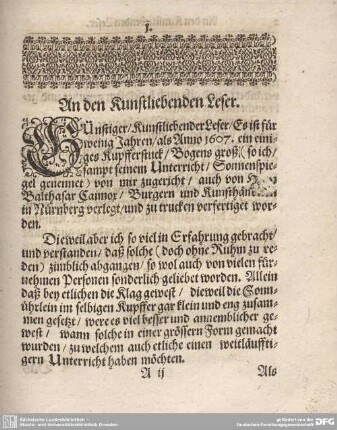 1.
An den Kunstliebenden Leser.
GÜnstiger/Kunstliebender Leser/Es ist für
wenig Jahren/als Anno 1607. ein eini-
ges Kupfferstuck/Bogens groß/(so ich/
sampt seinem Unterricht/Sonnenspie-
gel genennet) von mir zugericht/auch von
Balthasar Caimox/Burgern und Kunsthänd
in Nürnberg verlegt/und zu trucken verfertiget wor-
den.
Dieweil aber ich so viel in Erfahrung gebracht/
und verstanden/daß solche (doch ohne Ruhm zu re-
den) zimblich abgangen/so wol auch von vielen für-
nehmen Personen sonderlich geliebet worden. Allein
daß bey etlichen die Klag gewest/dieweil die Sonn-
ührlein im selbigen Kupffer gar klein und eng zusam-
men gesetzt/were es viel besser und annemblicher ge-
west/wann solche in einer grössern Form gemacht
wurden/zu welchem auch etliche einen weitläuffti-
gern Unterricht haben möchten.
A ij Als
Sächsische Landesbibliothek -
Staats- und Universitätsbibliothek Dresden
gefördert von der
Deutschen Forschungsgemeinschaft DFG